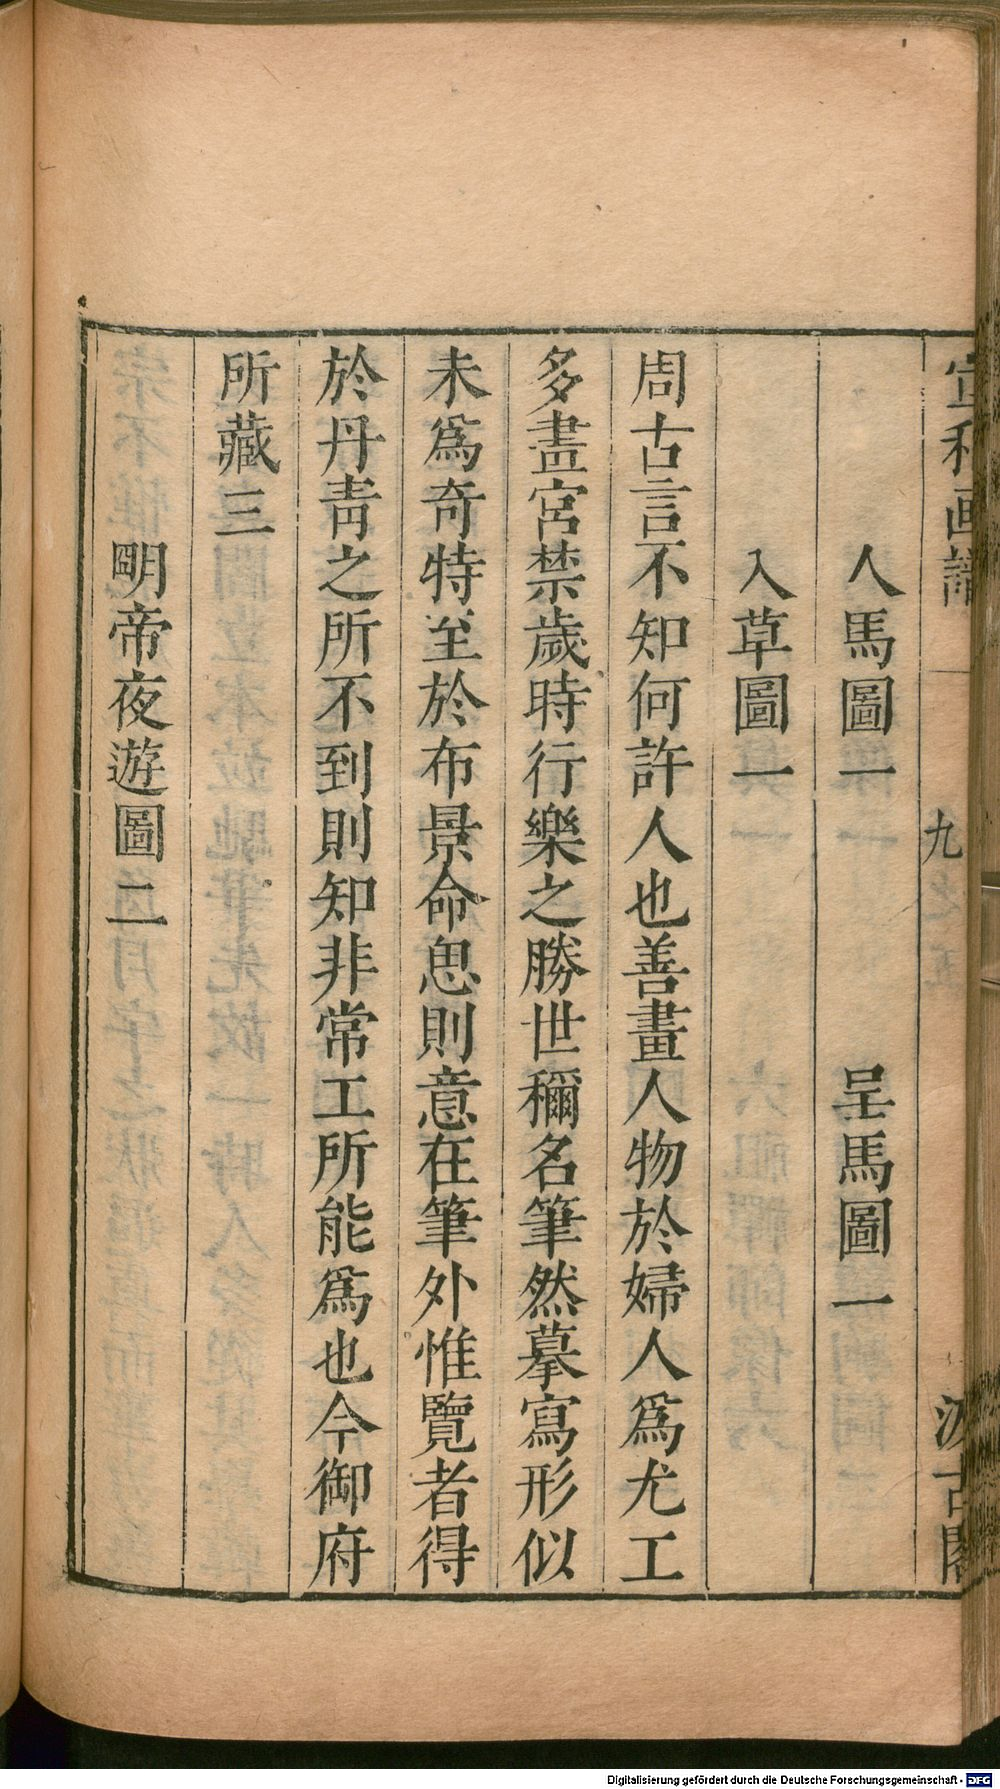 宣和画譜 九 汲古閣
人馬圖一 呈馬圖一
入草圖一
周古言不知何許人也善畫人物於婦人爲尤工
多畫宮禁歲時行樂之勝世稱名筆然摹寫形似
未爲奇特至於布景命思則意在筆外惟覽者得
於丹靑之所不到則知非常工所能爲也今御府
所藏三
明帝夜遊圖二
Digitalisierung gefördert durch die Deutsche Forschungsgemeinschaft - DFG